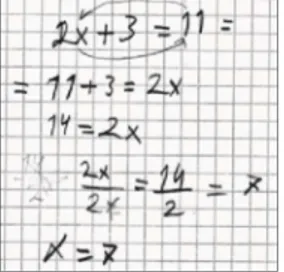 2x + 3 = 11 =
= 11 + 3 = 2x
14 = 2x
2x/2x = 14/2 = 7
x = 7